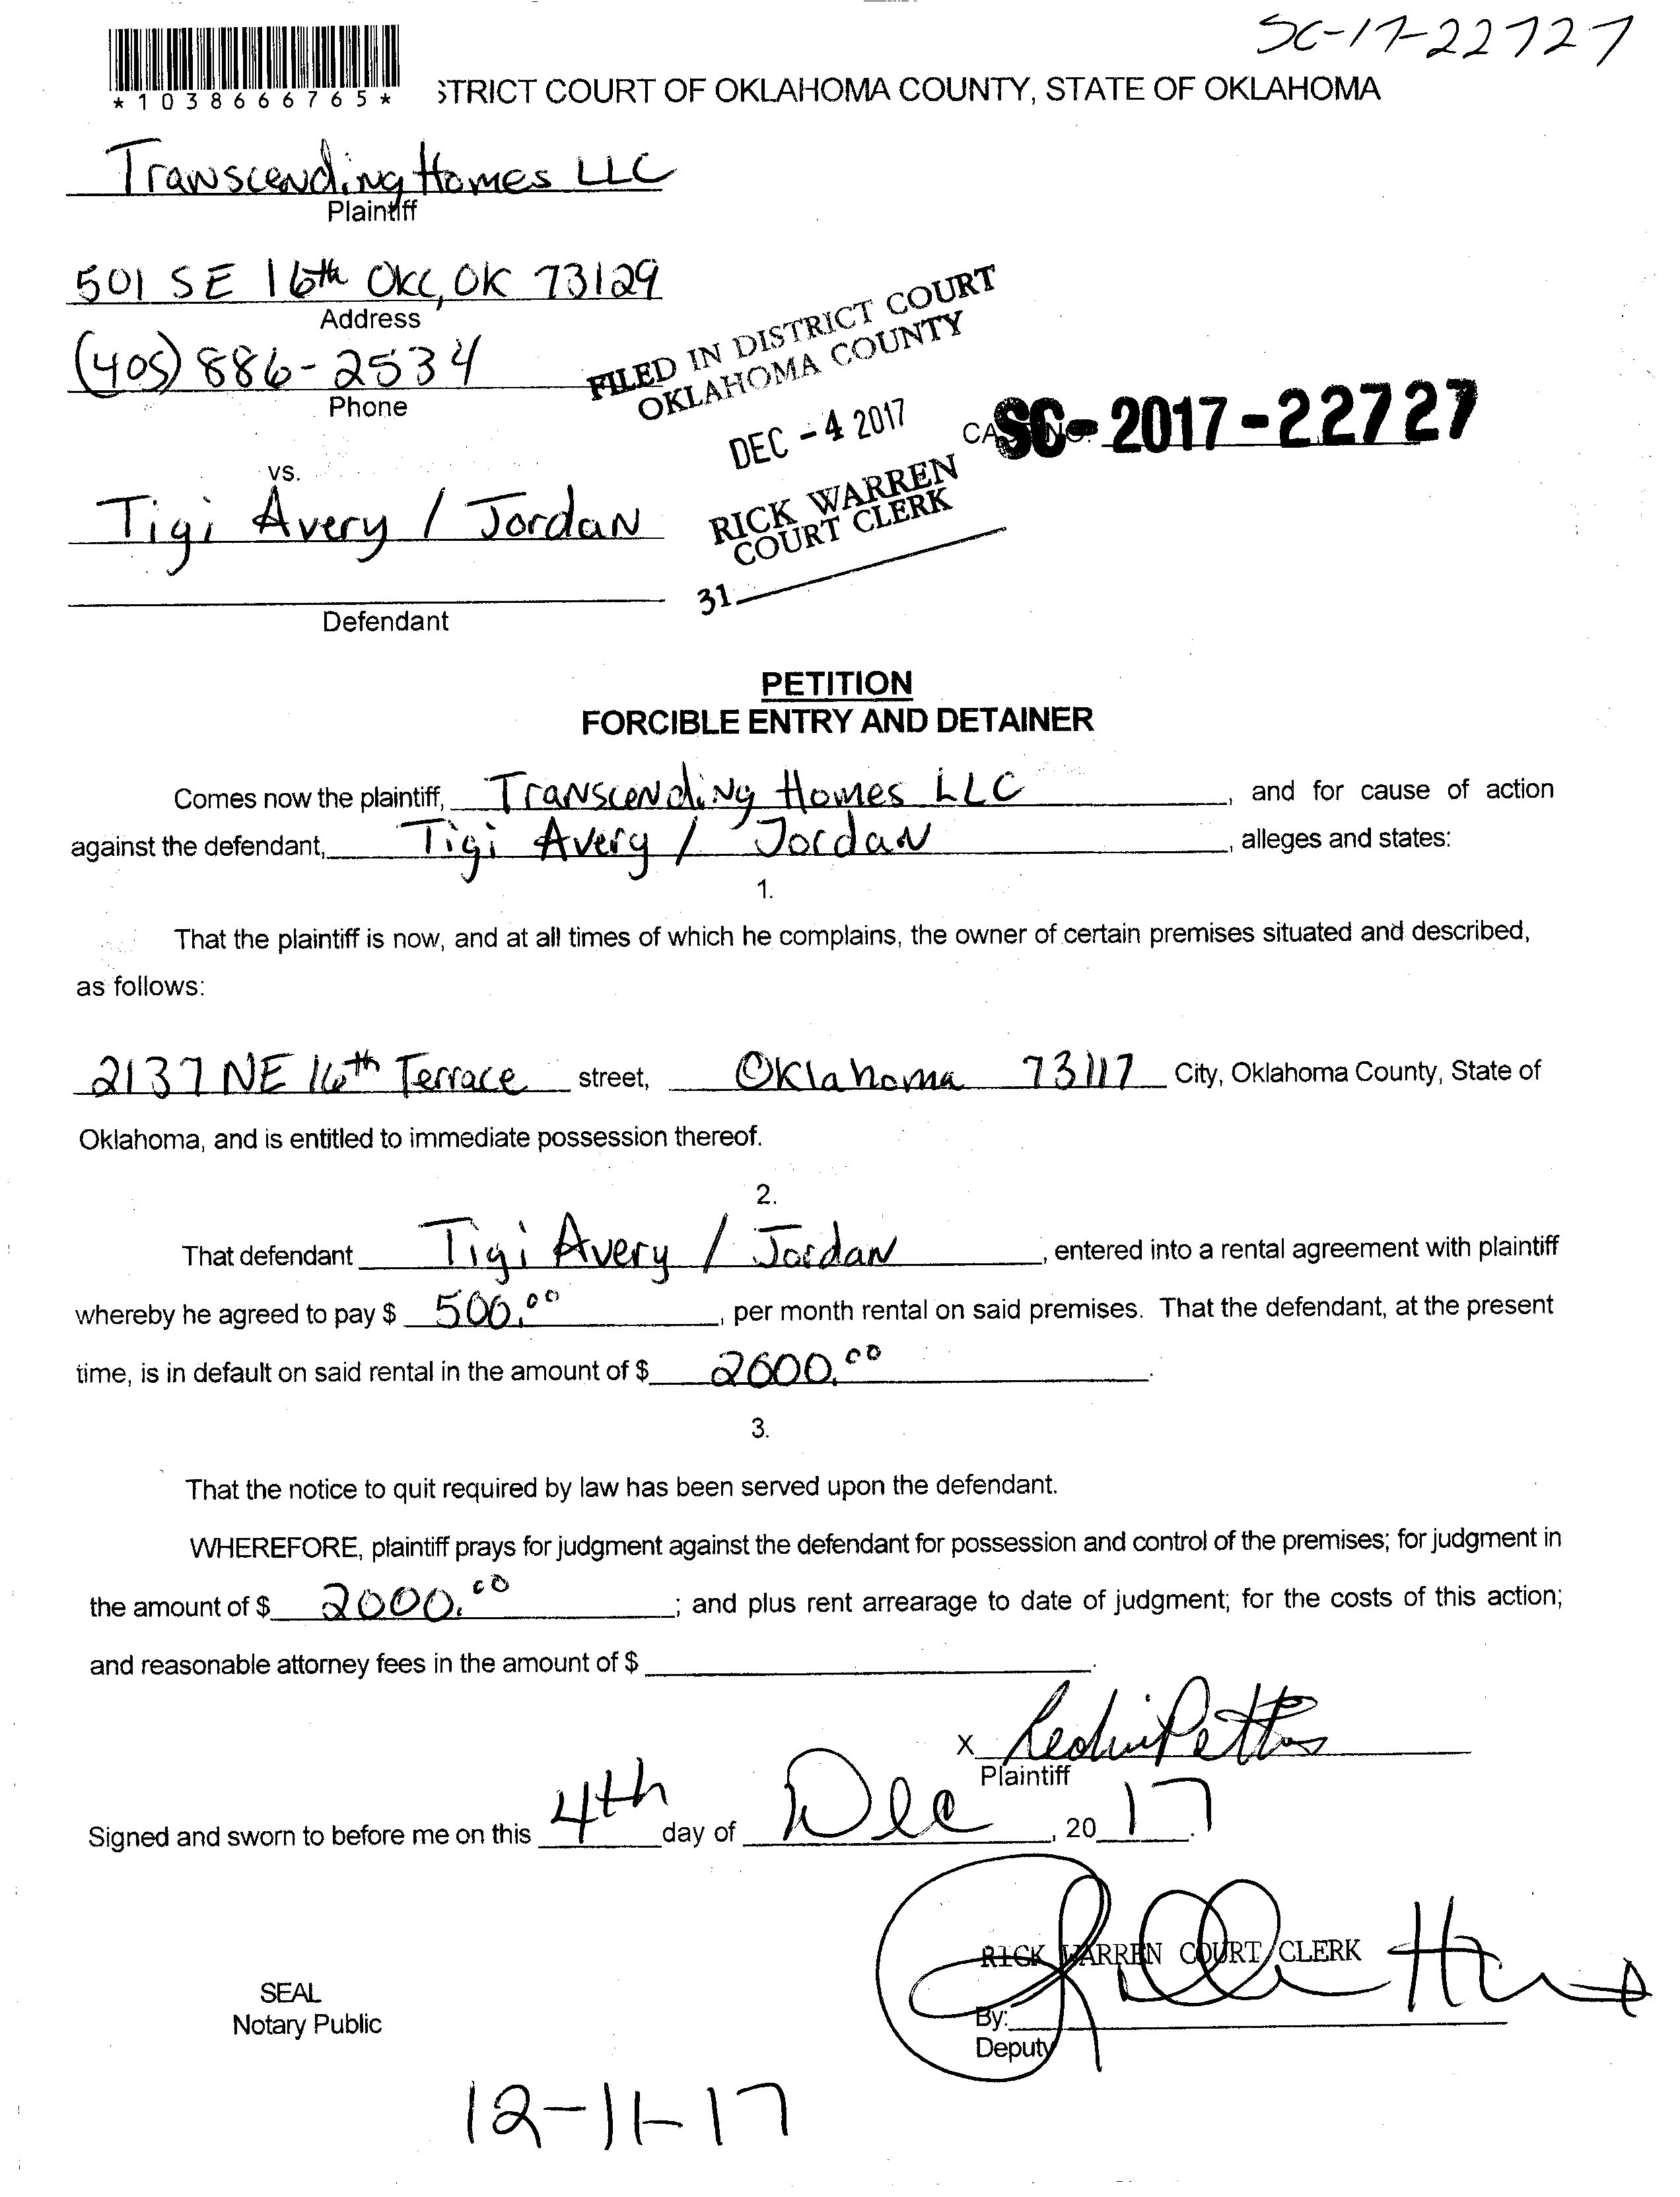 SC-17-22727
*1038666765*
STRICT COURT OF OKLAHOMA COUNTY, STATE OF OKLAHOMA
Transcending Homes LLC
Plaintiff
501 SE 16th OKC, OK 73129
Address
(405) 886-2534
Phone
FILED IN DISTRICT COURT
OKLAHOMA COUNTY
DEC - 4 2017
RICK WARREN
COURT CLERK
31
SC-2017-22727
vs.
Tigi Avery / Jordan
Defendant
PETITION
FORCIBLE ENTRY AND DETAINER
Comes now the plaintiff, Transcending Homes LLC, and for cause of action
against the defendant, Tigi Avery / Jordan, alleges and states:
1.
That the plaintiff is now, and at all times of which he complains, the owner of certain premises situated and described,
as follows:
2137 NE 16th Terrace street, Oklahoma 73117 City, Oklahoma County, State of
Oklahoma, and is entitled to immediate possession thereof.
2.
That defendant Tigi Avery / Jordan, entered into a rental agreement with plaintiff
whereby he agreed to pay $ 500.00, per month rental on said premises. That the defendant, at the present
time, is in default on said rental in the amount of $ 2000.00.
3.
That the notice to quit required by law has been served upon the defendant.
WHEREFORE, plaintiff prays for judgment against the defendant for possession and control of the premises; for judgment in
the amount of $ 2000.00; and plus rent arrearage to date of judgment; for the costs of this action;
and reasonable attorney fees in the amount of $ .
X
Plaintiff
Signed and sworn to before me on this 4th day of Dec, 2017.
RICK WARREN COURT CLERK
SEAL
Notary Public
By:
Deputy
12-11-17